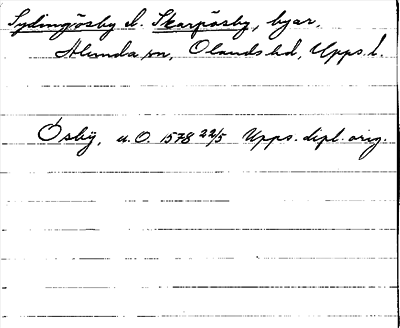 Sydingösby l. Skarpösby, byar,
Alunda sn, Olands hd, Upps. l.
Ösbÿ, u.O. 1578 22/5 Upps. dipl. orig.